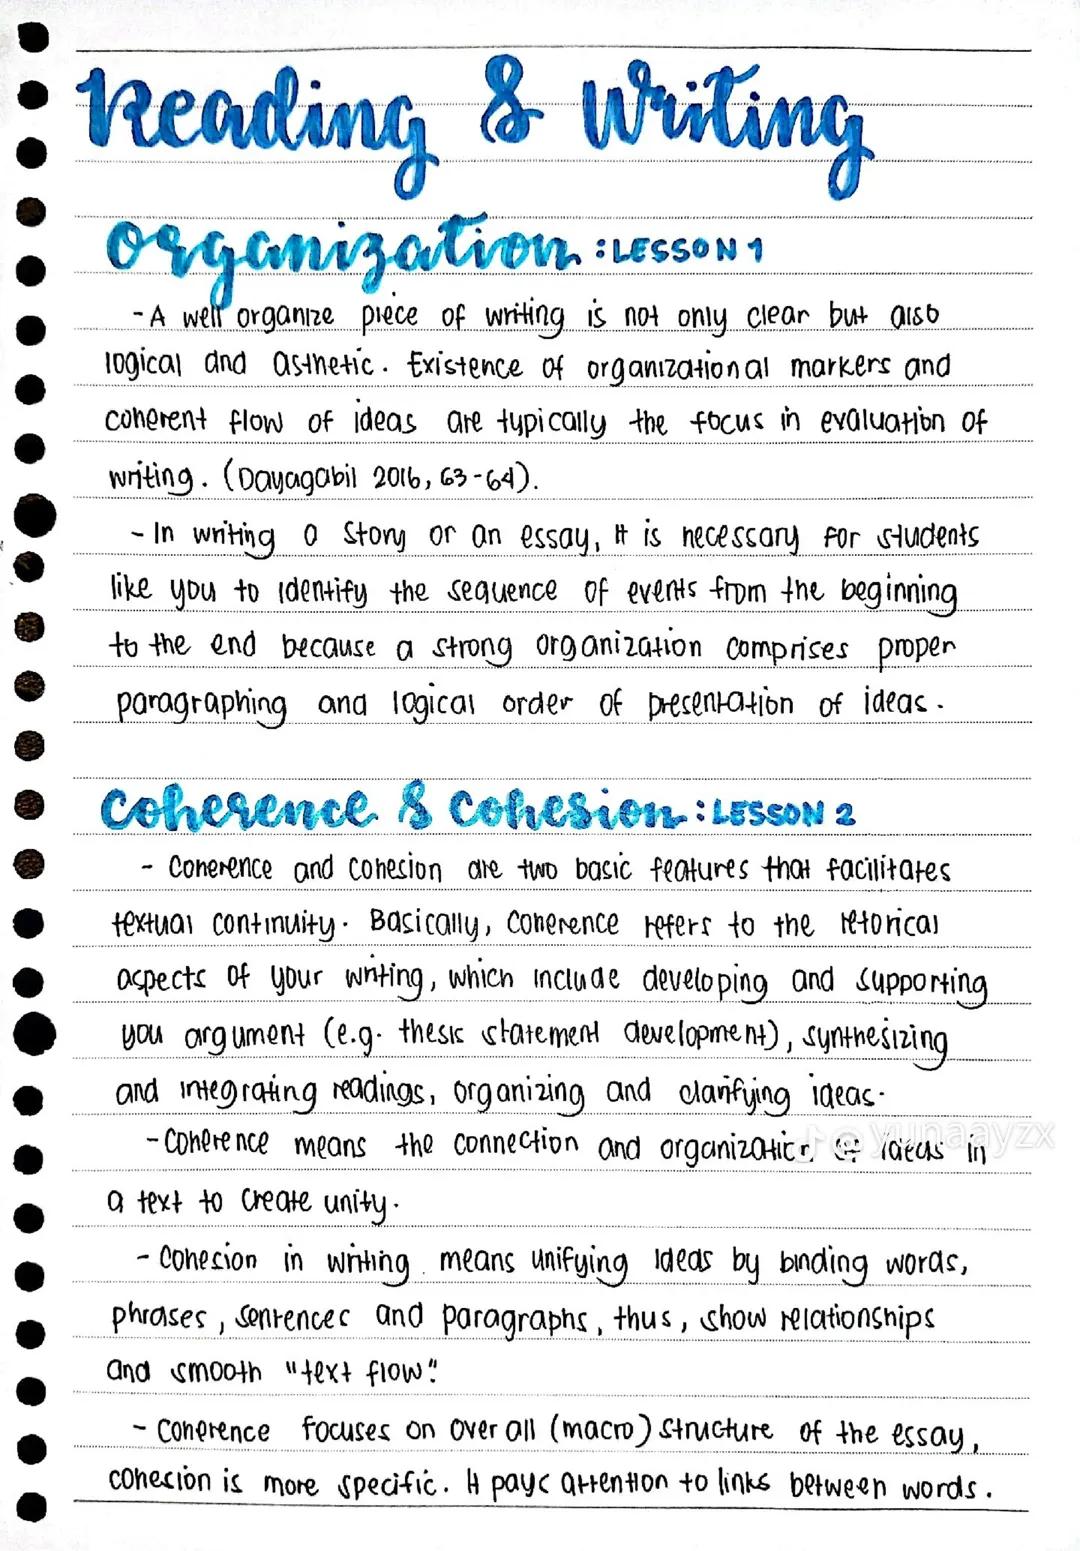 Reading & Writing
Organization : LESSON 1
- A well organize piece of writing is not only clear but also
logical and asthetic. Existence of organizational markers and
coherent flow of ideas are typically the focus in evaluation of
writing. (Dayagabil 2016, 63-64).
- In writing a story or an essay, it is necessary for students
like you to identify the sequence of events from the beginning
to the end because a strong organization comprises proper
paragraphing and logical order of presentation of ideas.
Coherence & Cohesion : LESSON 2
- Coherence and cohesion are two basic features that facilitates
textual continuity. Basically, coherence refers to the retorical
aspects of your writing, which include developing and supporting
you argument (e.g. thesis statement development), synthesizing
and integrating readings, organizing and clarifying ideas.
- Coherence means the connection and organization of ideas in
yunaayzx
a text to create unity.
- Cohesion in writing means unifying ideas by binding words,
phrases, sentences and paragraphs, thus, show relationships
and smooth "text flow."
- Coherence focuses on over all (macro) structure of the essay,
cohesion is more specific. It pays attention to links between words.